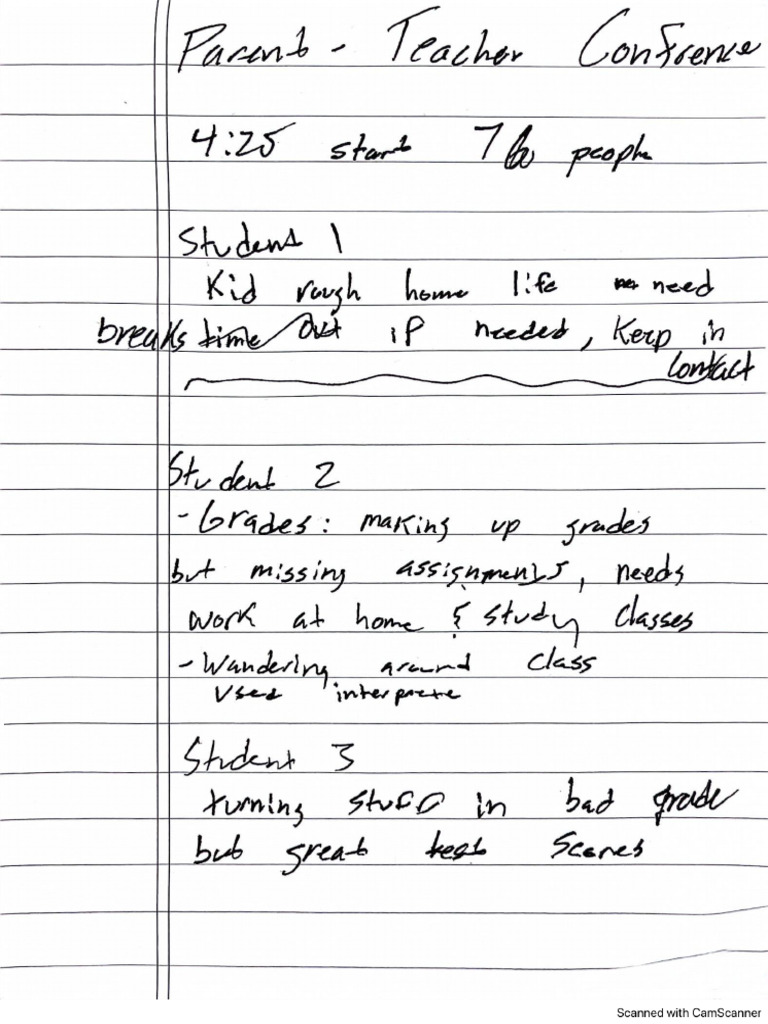 Parent - Teacher Confrence
4:25 start 7 people
Student 1
Kid rough home life need
breaks time out if needed, Keep in
Contact
Student 2
- Grades: making up grades
but missing assignments, needs
work at home & study classes
- Wandering around class
used interprete
Student 3
turning stuff in bad grade
but great test Scores
Scanned with CamScanner